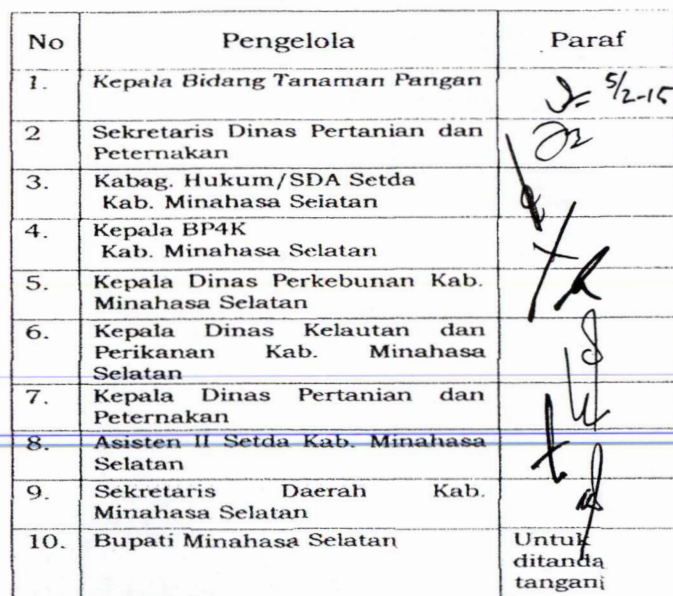 No Pengelola Paraf
1. Kepala Bidang Tanaman Pangan 5/2-15
2 Sekretaris Dinas Pertanian dan
Peternakan
3. Kabag. Hukum/SDA Setda
Kab. Minahasa Selatan
4. Kepala BP4K
Kab. Minahasa Selatan
5. Kepala Dinas Perkebunan Kab.
Minahasa Selatan
6. Kepala Dinas Kelautan dan
Perikanan Kab. Minahasa
Selatan
7. Kepala Dinas Pertanian dan
Peternakan
8. Asisten II Setda Kab. Minahasa
Selatan
9. Sekretaris Daerah Kab.
Minahasa Selatan
10. Bupati Minahasa Selatan Untuk
ditanda
tangani